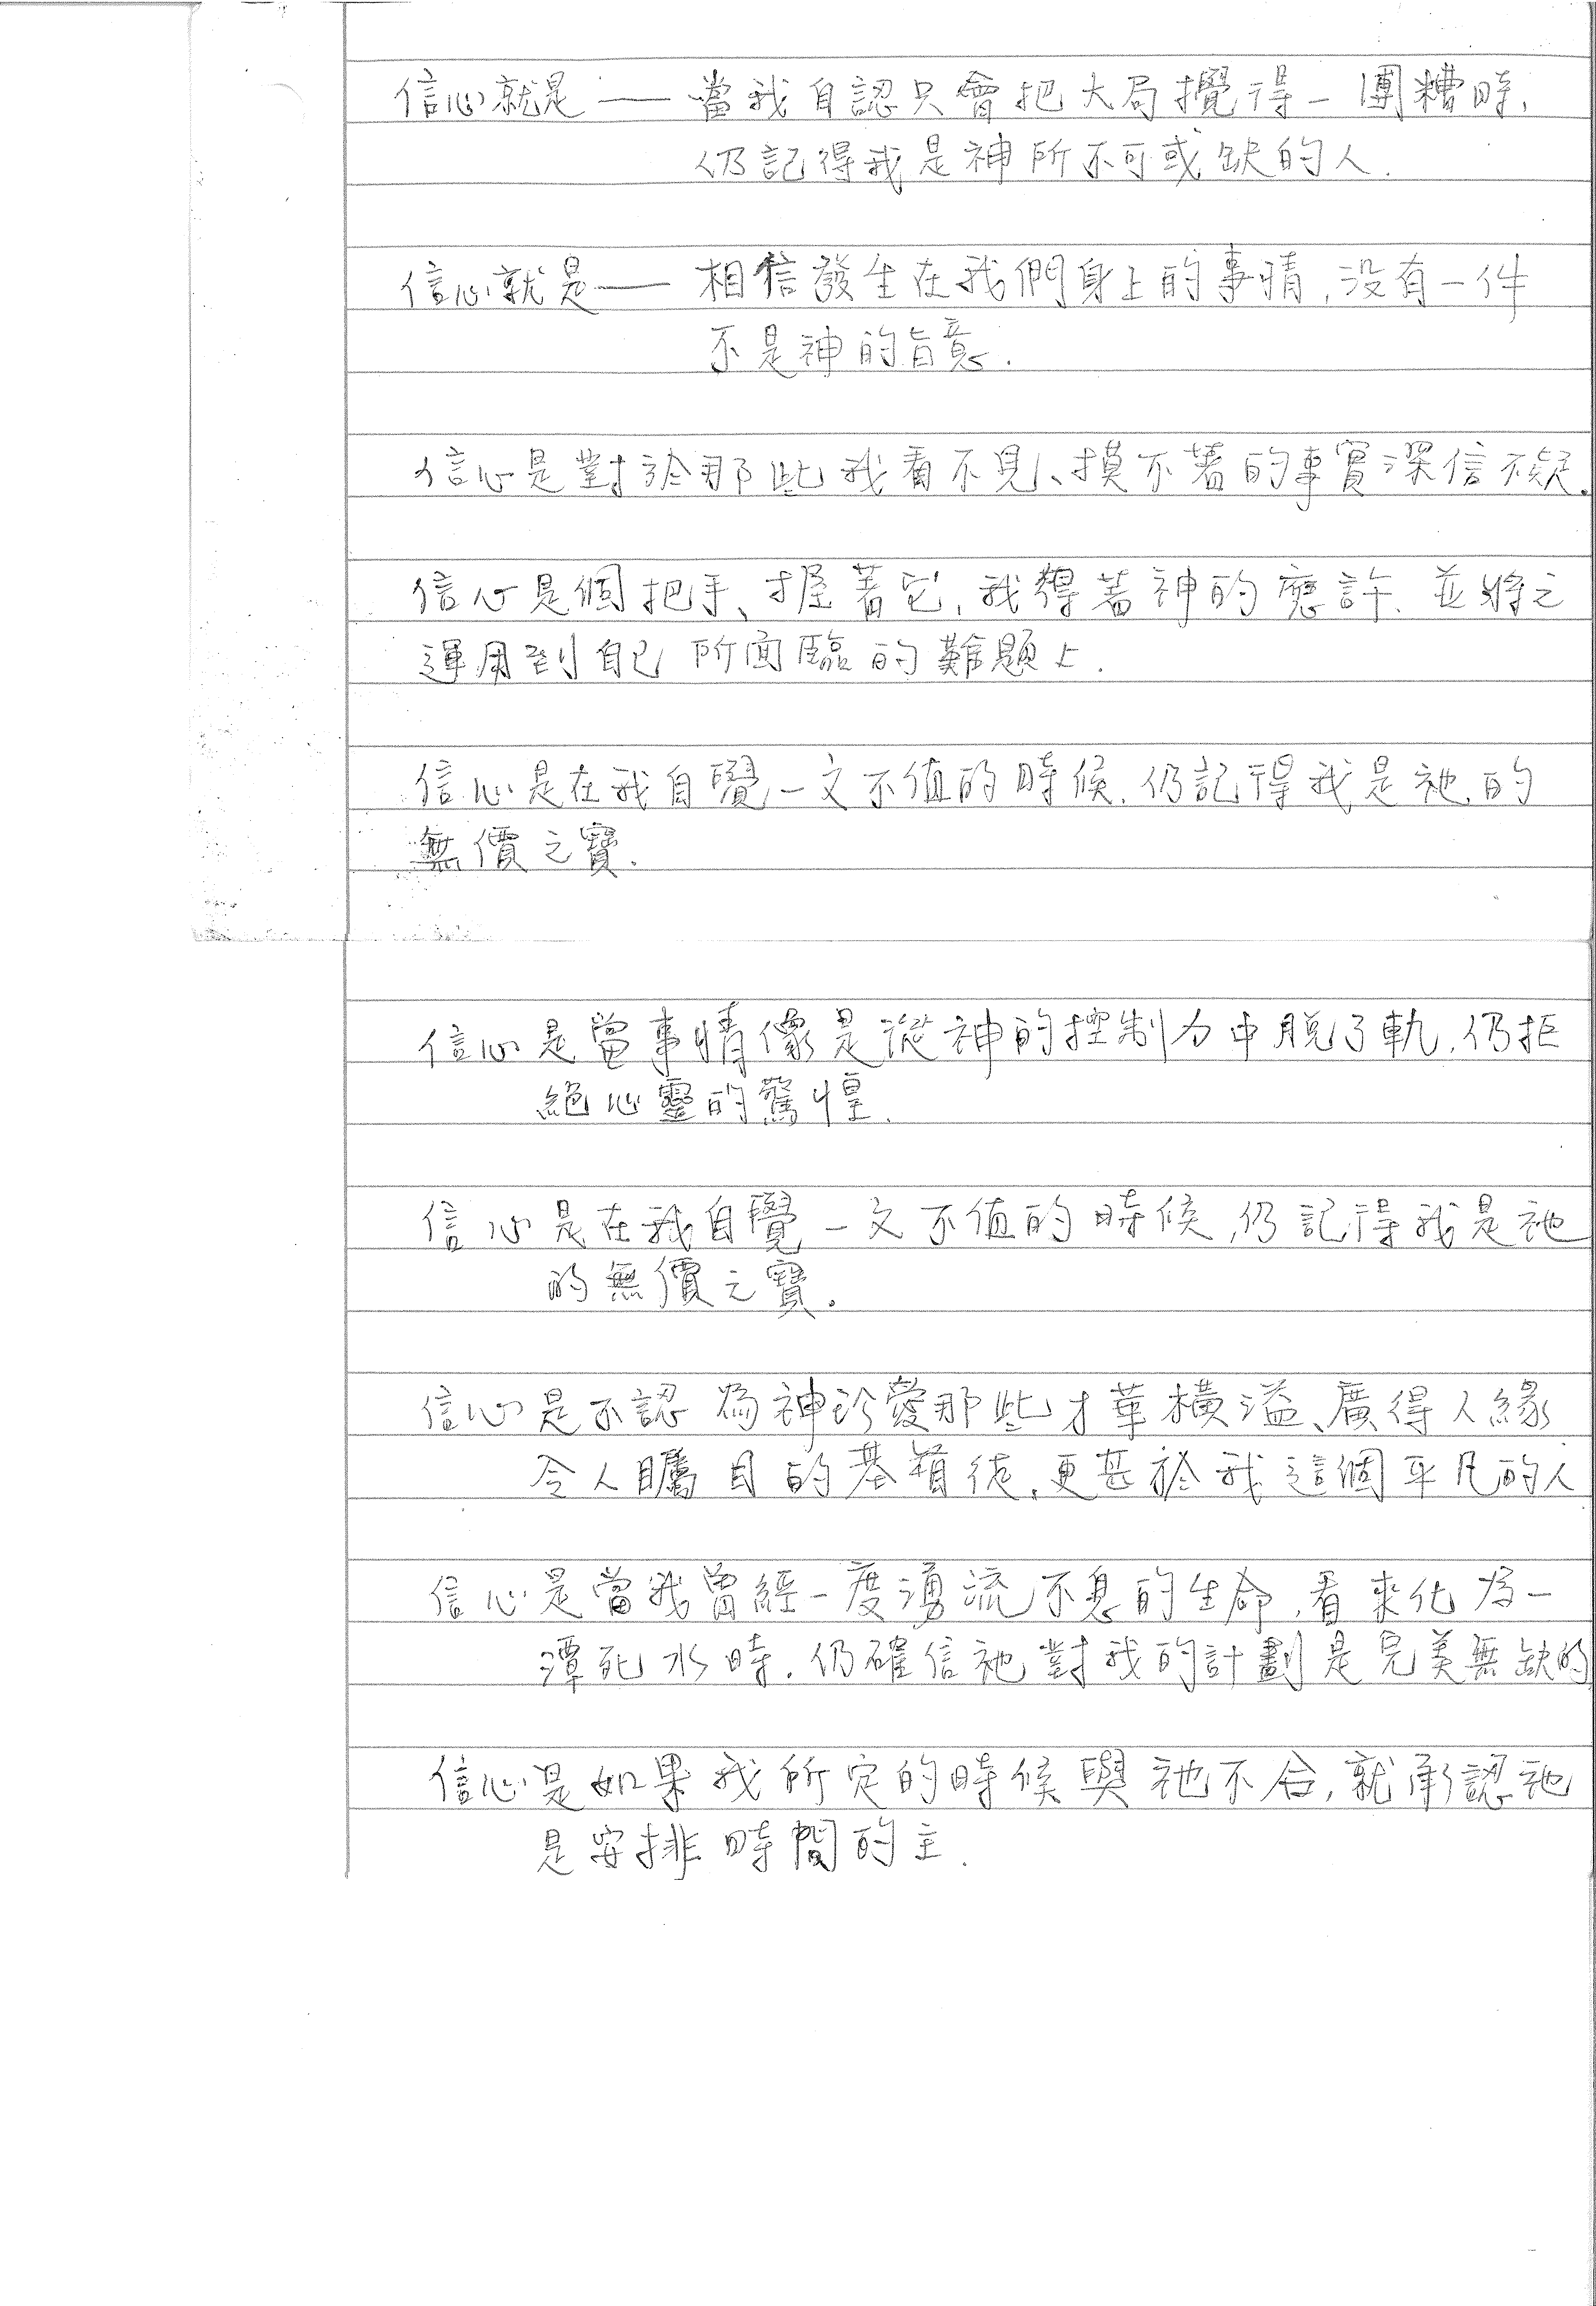 信心就是——當我自認只會把大局攪得一團糟時,
仍記得我是神所不可或缺的人.
信心就是——相信發生在我們身上的事情,没有一件
不是神的旨意.
信心是對於那些我看不見、摸不著的事實深信不疑.
信心是個把手、握著它,我得著神的應許.並將之
運用到自己所面臨的難題上.
信心是在我自覺一文不值的時候.仍記得我是祂的
無價之寶.
信心是當事情像是從神的控制力中脫了軌,仍拒
絕心靈的驚惶.
信心是在我自覺一文不值的時候,仍記得我是祂
的無價之寶.
信心是不認為神珍愛那些才華橫溢、廣得人緣
令人矚目的基督徒.更甚於我這個平凡的人
信心是當我曾經一度湧流不息的生命,看來化為一
潭死水時.仍確信祂對我的計劃是完美無缺的
信心是如果我所定的時候與祂不合,就承認祂
是安排時間的主.